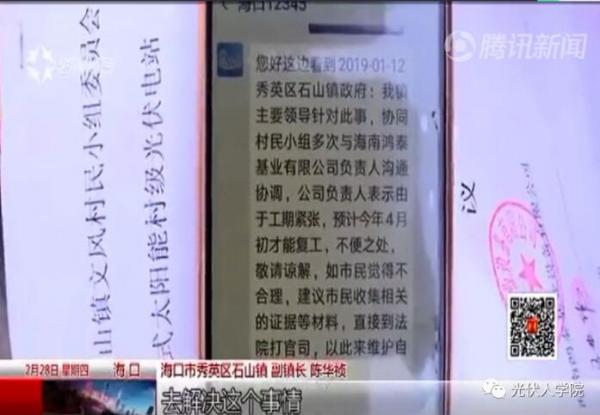 海口12345
腾讯新闻
山镇文风村民小组委员会
式太阳能村级光伏电站
您好这边看到 2019-01-12
秀英区石山镇政府：我镇
主要领导针对此事，协同
村民小组多次与海南鸿泰
基业有限公司负责人沟通
协调，公司负责人表示由
于工期紧张，预计今年4月
初才能复工，不便之处，
敬请谅解，如市民觉得不
合理，建议市民收集相关
的证据等材料，直接到法
院打官司，以此来维护自
议
2月28日 星期四 海口 海口市秀英区石山镇 副镇长 陈华祯
去解决这个事情
光伏人学院